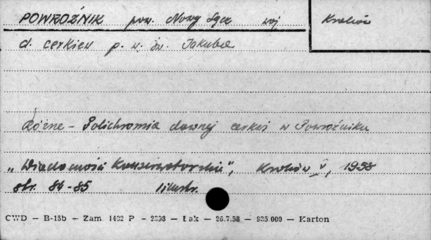 POWROŹNIK pow. Nowy Sącz woj Kraków
d. cerkiew p. w. św. Jakuba
Różne - Polichromia dawnej cerkwi w Powroźniku
„Wiadomości Konserwatorskie", Kraków V, 1955
str. 84-85 ilustr.
CWD — B-15b — Zam 1492 P - 2338 — Łak — 26.7.58 — 935 000 — Karton